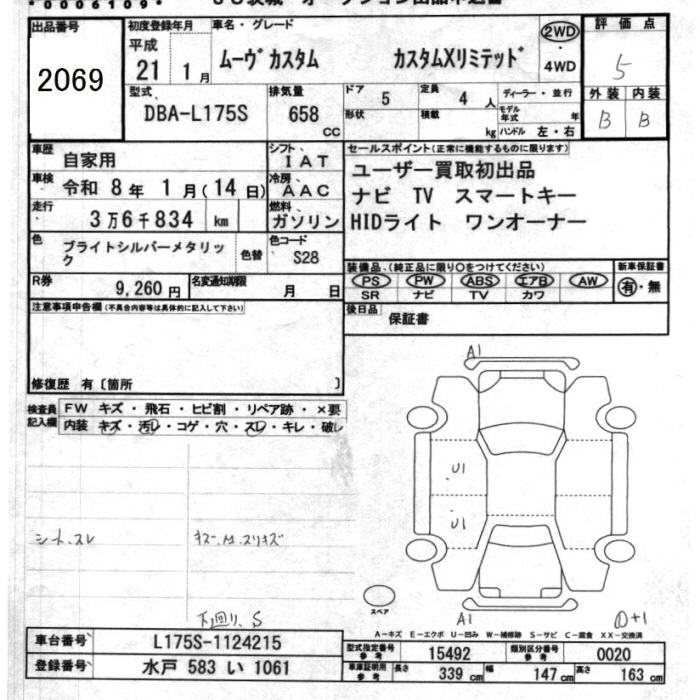 0006109
出品番号
2069
初度登録年月
平成
21 1月
車名・グレード
ムーヴカスタム カスタムXリミテッド
2WD
・
4WD
評価点
5
外装 内装
B B
型式
DBA-L175S
排気量
658
CC
ドア
5
定員
4 人
形状
積載
kg
ディーラー・並行
モデル年式 年
ハンドル 左・右
車歴
自家用
シフト
IAT
車検
令和 8年 1月(14日)
冷房
AAC
走行
3万6千834 km
燃料
ガソリン
色
ブライトシルバーメタリック
色替
色コード
S28
R券
9,260 円
名変通知期限
月 日
セールスポイント(正常に機能するものに限ります)
ユーザー買取初出品
ナビ TV スマートキー
HIDライト ワンオーナー
装備品(純正品に限り○をつけてください)
PS PW ABS エアB AW
SR ナビ TV カワ
新車保証書
有・無
後日品
保証書
注意事項申告欄(不具合内容等は具体的に記入して下さい)
修復歴 有〔箇所 〕
検査員記入欄
FW キズ・飛石・ヒビ割・リペア跡・×要
内装 キズ・汚レ・コゲ・穴・スレ・キレ・破レ
シート.スレ
下廻り、S
A1
U1
U1
A1
スペア
A-キズ E-エクボ U-凹み W-補修跡 S-サビ C-腐食 XX-交換済
車台番号
L175S-1124215
登録番号
水戸 583 い 1061
型式指定番号
参考
15492
類別区分番号
参考
0020
車庫証明用
参考
長さ
339 cm
幅
147 cm
高さ
163 cm